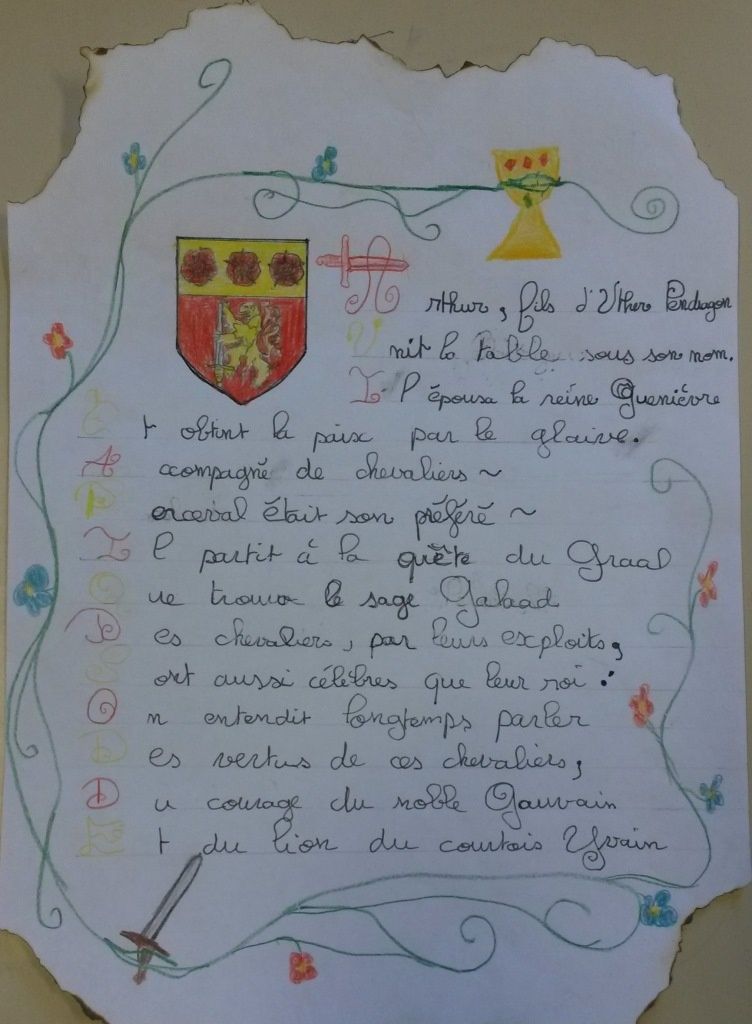 Arthur, fils d'Uther Pendragon
Unit la table sous son nom.
Il épousa la reine Guenièvre
Et obtint la paix par le glaive.
Accompagné de chevaliers ~
Perceval était son préféré ~
Il partit à la quête du Graal
Que trouva le sage Galaad
Des chevaliers, par leurs exploits,
Sont aussi célèbres que leur roi :
On entendit longtemps parler
Des vertus de ces chevaliers,
Du courage du noble Gauvain
Et du lion du courtois Yvain